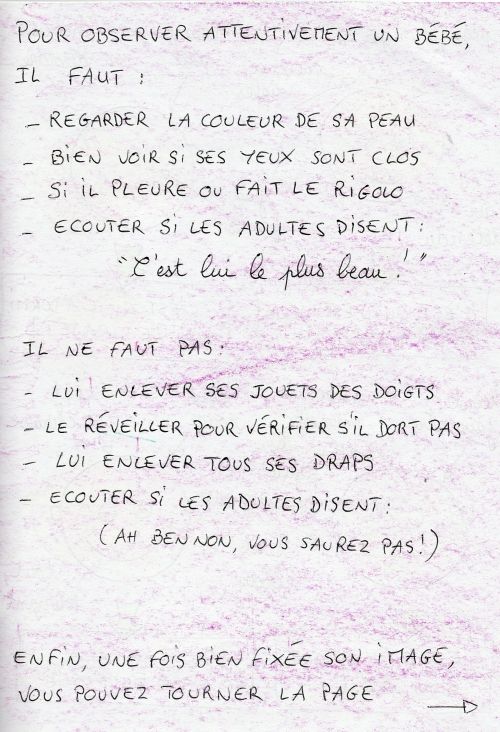 POUR OBSERVER ATTENTIVEMENT UN BÉBÉ,
IL FAUT :
_ REGARDER LA COULEUR DE SA PEAU
_ BIEN VOIR SI SES YEUX SONT CLOS
_ SI IL PLEURE OU FAIT LE RIGOLO
_ ECOUTER SI LES ADULTES DISENT :
"C'est lui le plus beau !"
IL NE FAUT PAS :
- LUI ENLEVER SES JOUETS DES DOIGTS
- LE RÉVEILLER POUR VÉRIFIER S'IL DORT PAS
- LUI ENLEVER TOUS SES DRAPS
- ECOUTER SI LES ADULTES DISENT :
(AH BEN NON, VOUS SAUREZ PAS !)
ENFIN, UNE FOIS BIEN FIXÉE SON IMAGE,
VOUS POUVEZ TOURNER LA PAGE →